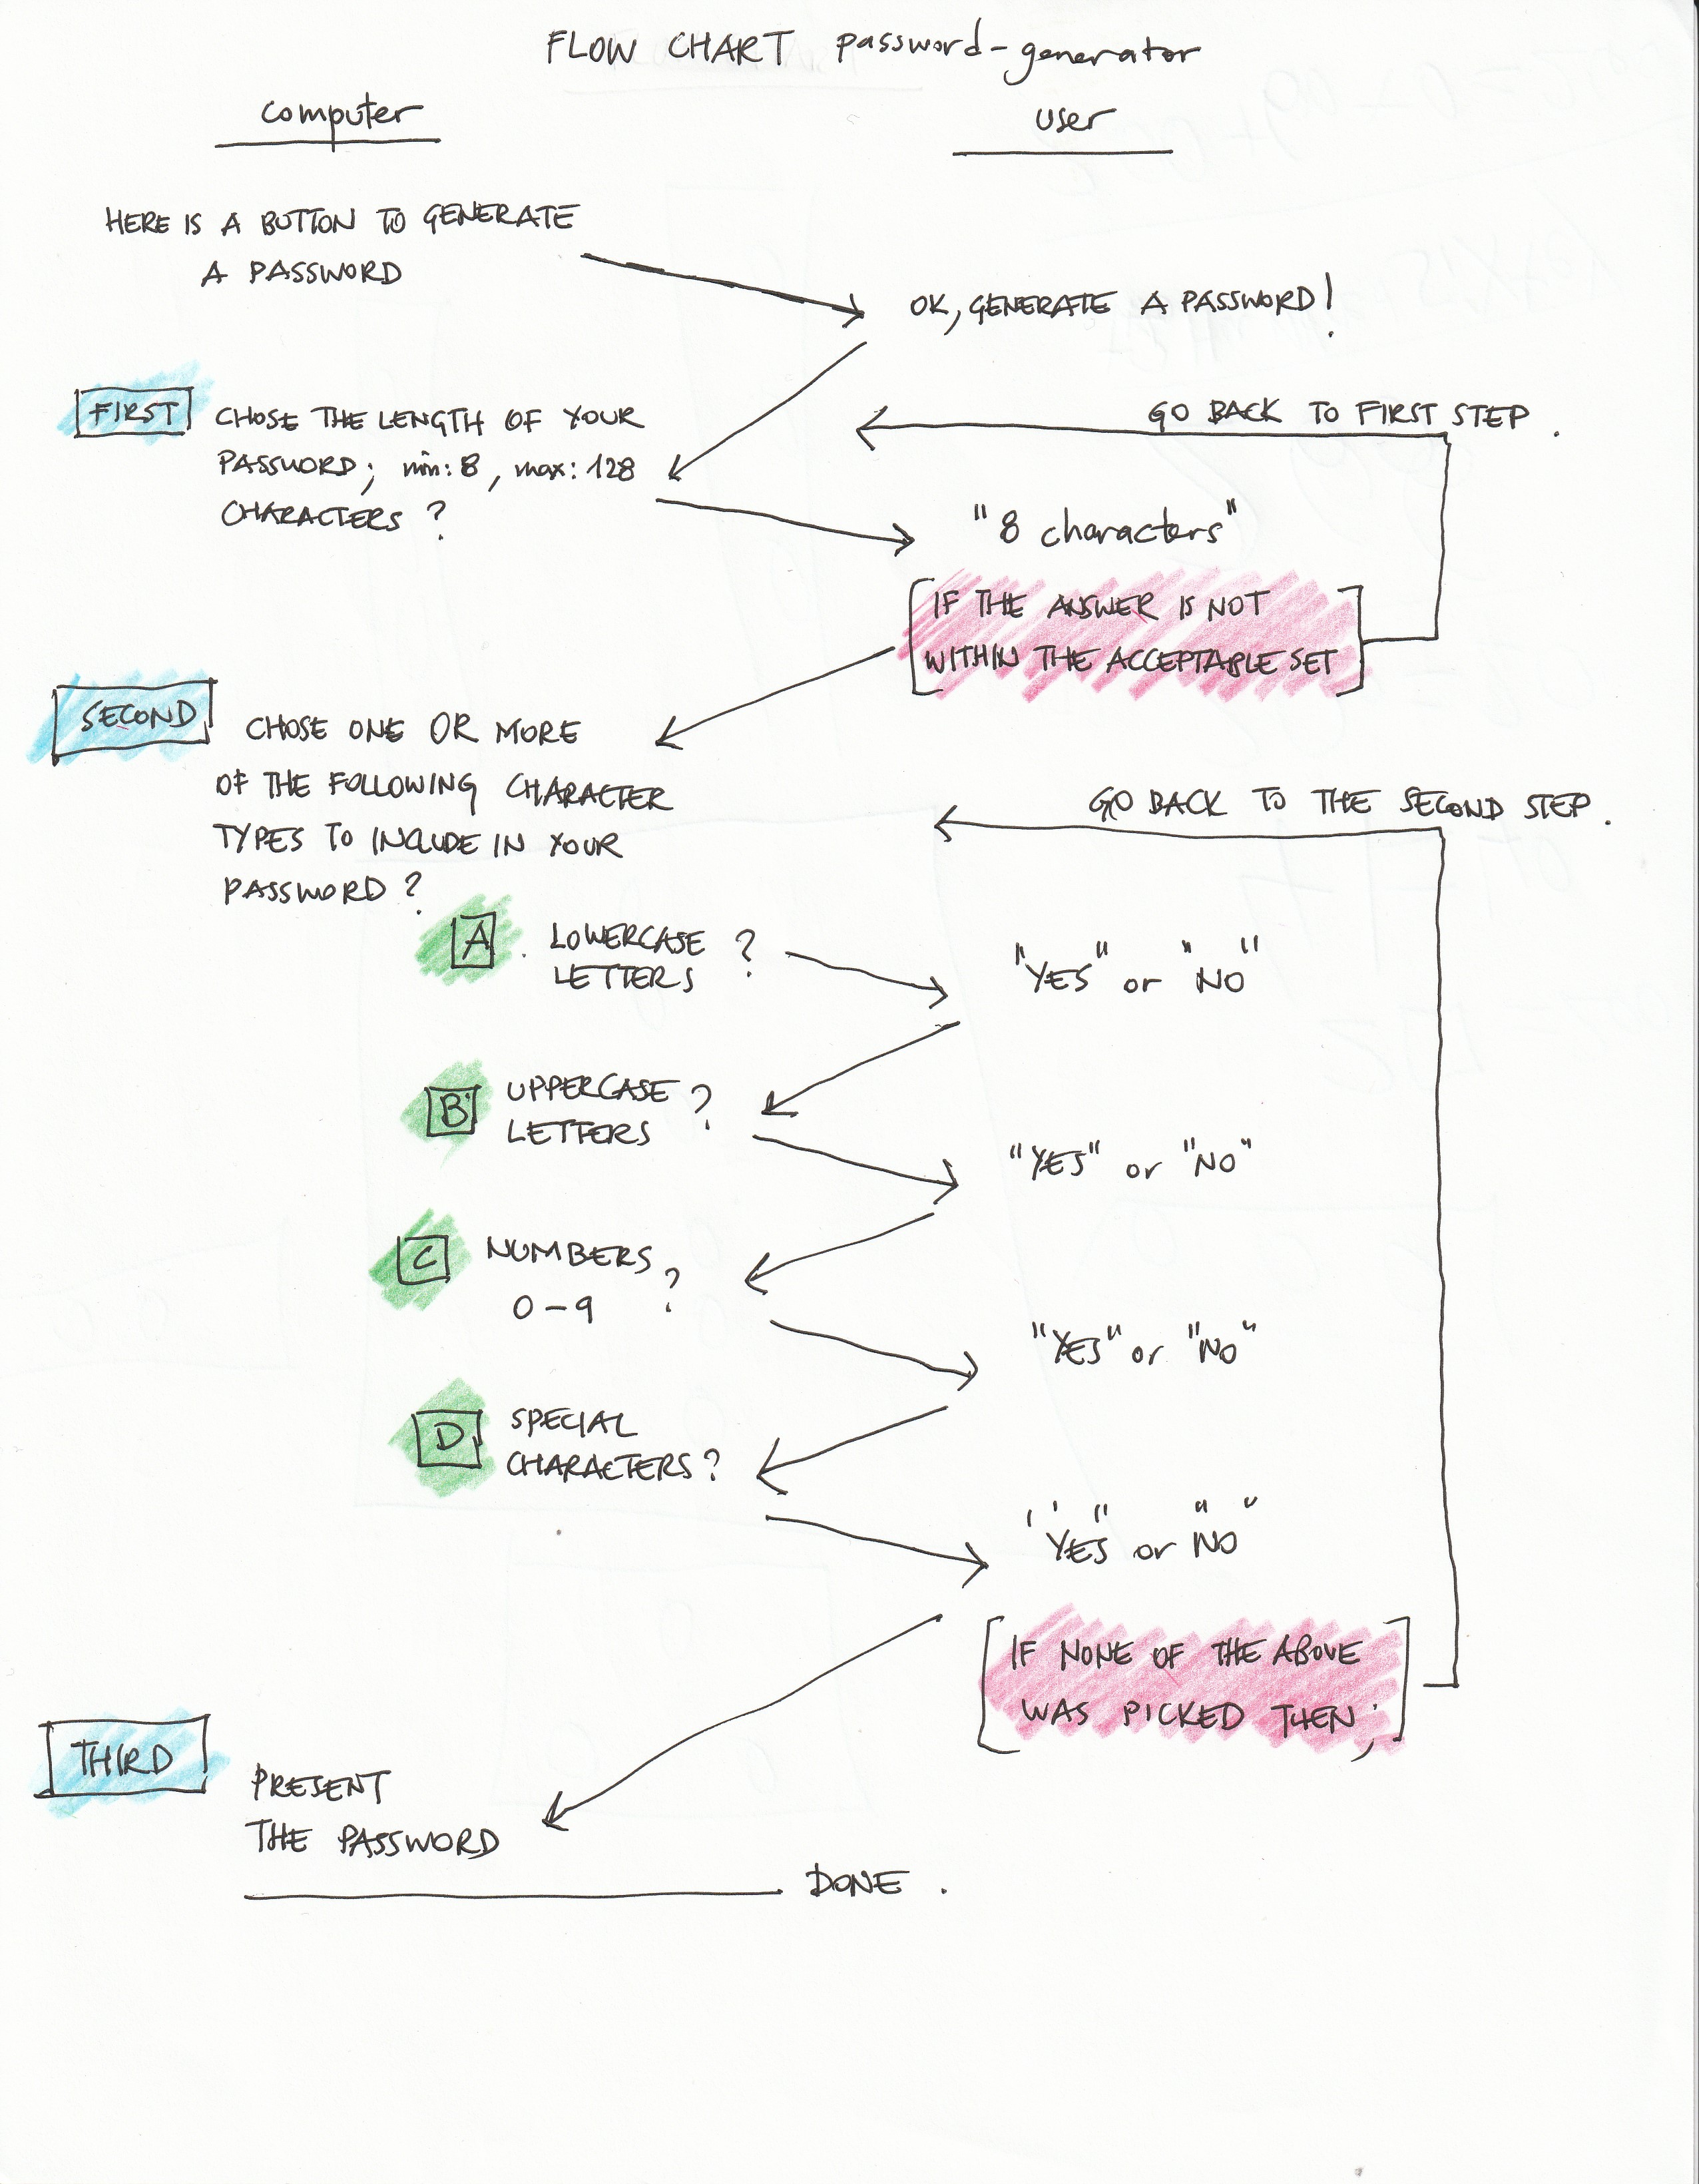 FLOW CHART password-generator
computer
user
HERE IS A BUTTON TO GENERATE
A PASSWORD
OK, GENERATE A PASSWORD!
FIRST
CHOSE THE LENGTH OF YOUR
PASSWORD; min: 8, max: 128
CHARACTERS?
GO BACK TO FIRST STEP.
"8 characters"
[IF THE ANSWER IS NOT
WITHIN THE ACCEPTABLE SET]
SECOND
CHOSE ONE OR MORE
OF THE FOLLOWING CHARACTER
TYPES TO INCLUDE IN YOUR
PASSWORD?
GO BACK TO THE SECOND STEP.
A. LOWERCASE
LETTERS?
"YES" or "NO"
B UPPERCASE
LETTERS?
"YES" or "NO"
C NUMBERS
0-9?
"YES" or "NO"
D SPECIAL
CHARACTERS?
"YES" or "NO"
[IF NONE OF THE ABOVE
WAS PICKED THEN;]
THIRD
PRESENT
THE PASSWORD
DONE.